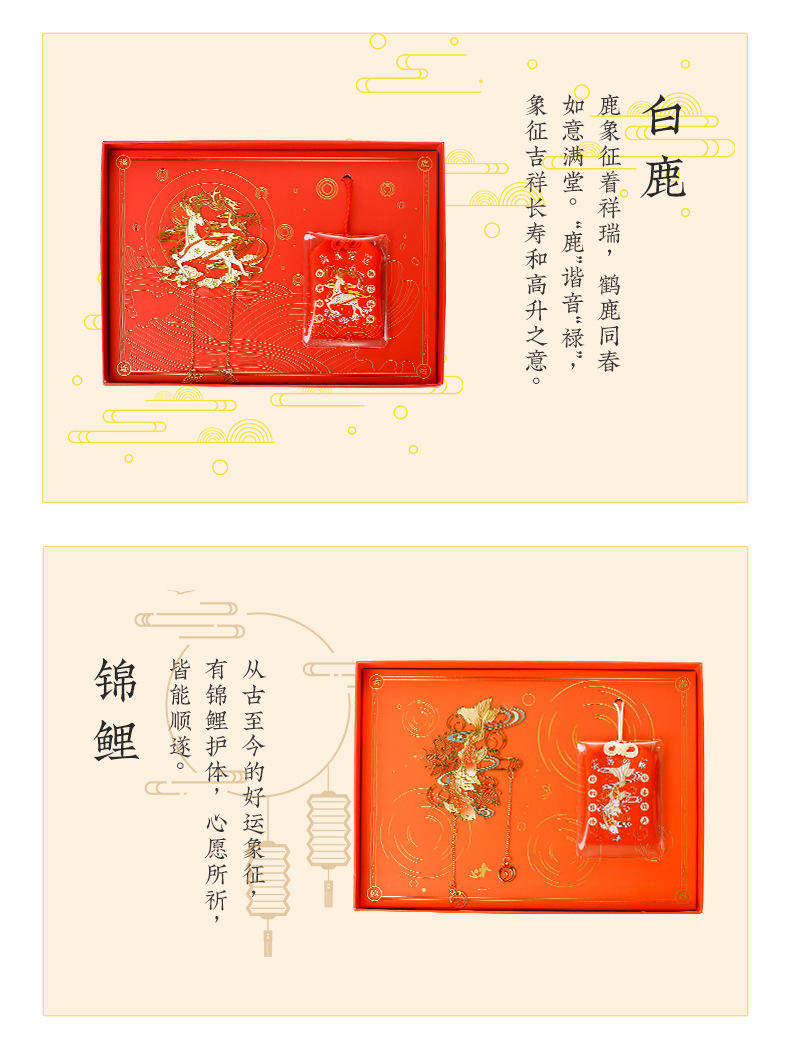 白鹿
鹿象征着祥瑞，鹤鹿同春
如意满堂。“鹿”谐音“禄”，
象征吉祥长寿和高升之意。
锦鲤
从古至今的好运象征，
有锦鲤护体，心愿所祈，
皆能顺遂。